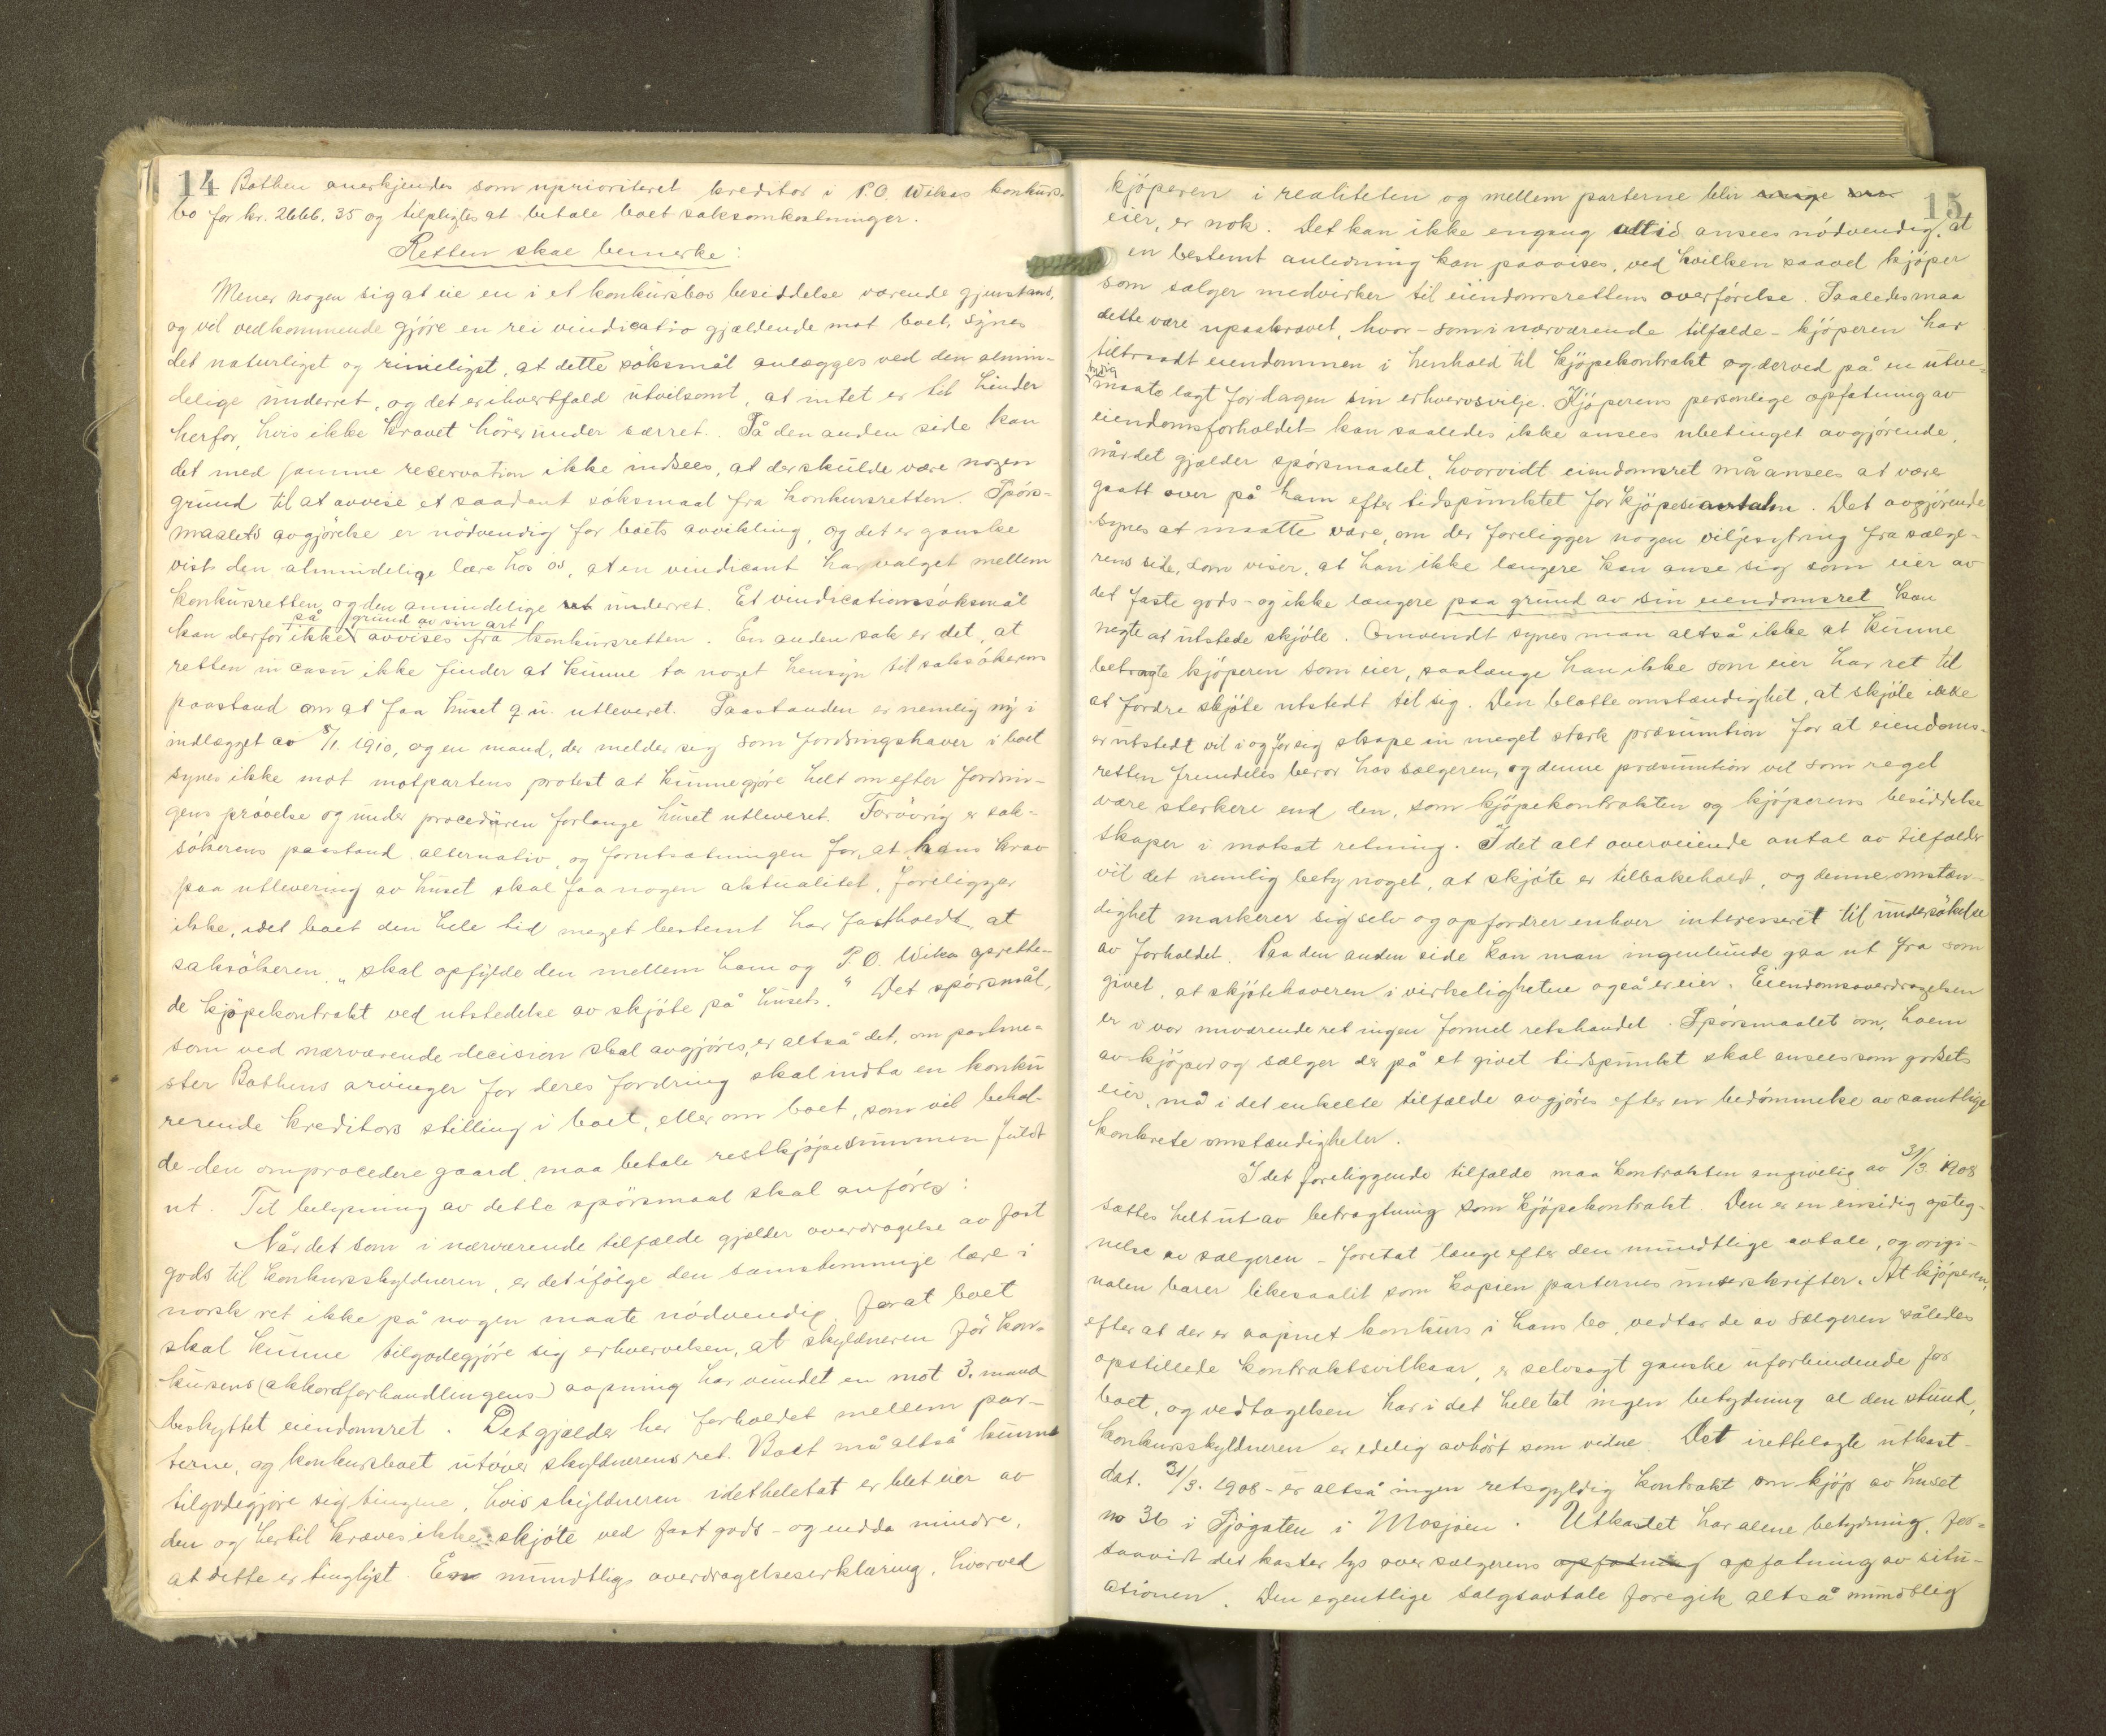 14 Bothen anerkjendes som uprioriteret kreditor i P.O. Wikas konkurs-
bo for kr. 2666.35 og tilpligtes at betale boet saksomkostninger.
Retten skal bemerke:
Mener nogen sig at eie en i et konkursbos besiddelse værende gjenstand,
og vil vedkommende gjøre en rei vindicatio gjældende mot boet, synes
det naturligst og rimeligst, at dette søksmål anlægges ved den almin-
delige underret, og det er ihvertfald utvilsomt, at intet er til hinder
herfor, hvis ikke kravet hører under særret. På den anden side kan
det med samme reservation ikke indsees, at der skulde være nogen
grund til at avvise et saadant søksmaal fra konkursretten. Spørs-
maalets avgjørelse er nødvendig for boets avvikling, og det er ganske
vist den almindelige lære hos os, at en vindicant har valget mellem
konkursretten og den amindelige ret underret. Et vindicationssøksmål
på grund av sin art
kan derfor ikke avvises fra konkursretten. En anden sak er det, at
retten in casu ikke finder at kunne ta noget hensyn til saksøkerens
paastand om at faa huset q.u. utleveret. Paastanden er nemlig ny i
indlægget av 5/1. 1910, og en mand, der melder sig som fordringshaver i boet
synes ikke mot motpartens protest at kunne gjøre helt om efter fordrin-
gens prøvelse og under proceduren forlange huset utleveret. Forøvrig er sak-
søkerens paastand alternativ, og forutsætningen for, at hans krav
paa utlevering av huset skal faa nogen aktualitet, foreligger
ikke, idet boet den hele tid meget bestemt har fastholdt, at
saksøkeren "skal opfylde den mellem ham og P.O. Wika oprette-
de kjøpekontrakt ved utstedelse av skjøte på huset." Det spørsmål,
som ved nærværende decision skal avgjøres, er altså det, om postme-
ster Bothens arvinger for deres fordring skal indta en konku
rerende kreditors stilling i boet, eller om boet, som vil behol-
de den omprocedere gaard, maa betale restkjøpesummen fuldt
ut. Til belysning av dette spørsmaal skal anføres:
Når det som i nærværende tilfælde gjælder overdragelse av fast
gods til konkursskyldneren, er det ifølge den samstemmige lære i
norsk ret ikke på nogen maate nødvendig for at boet
skal kunne tilgodegjøre sig erhvervelsen, at skyldneren før kon-
kursens (akkordforhandlingens) aapning har vundet en mot 3. mand
beskyttet eiendomsret. Det gjælder her forholdet mellem par-
terne, og konkursboet utøver skyldnerens ret. Boet må altså kunne
tilgodegjøre sig tingene, hvis skyldneren idetheletat er blet eier av
den og hertil kræves ikke skjøte ved fast gods - og endda mindre,
at dette er tinglyst. En mundtlig overdragelseserklæring, hvorved
15
kjøperen i realiteten og mellem parterne blir
eier, er nok. Det kan ikke engang altid ansees nødvendig, at
en bestemt anledning kan paavises, ved hvilken saavel kjøper
som sælger medvirker til eiendomsrettens overførelse. Saaledes maa
dette være upaakrævet, hvor - som i nærværende tilfælde - kjøperen har
tiltraadt eiendommen i henhold til kjøpekontrakt og derved på en utve-
tydig
maate lagt for dagen sin erhvervsvilje. Kjøperens personlige opfatning av
eiendomsforholdet kan saaledes ikke ansees ubetinget avgjørende,
når det gjælder spørsmaalet, hvorvidt eiendomsret må ansees at være
gaatt over på ham efter tidspunktet for kjøpesiavtalen. Det avgjørende
synes at maatte være, om der foreligger nogen viljesytring fra sælge-
rens side, som viser, at han ikke længere kan anse sig som eier av
det faste gods - og ikke længere paa grund av sin eiendomsret kan
negte at utstede skjøte. Omvendt synes man altså ikke at kunne
betragte kjøperen som eier, saalænge han ikke som eier har ret til
at fordre skjøte utstedt til sig. Den blotte omstændighet, at skjøte ikke
er utstedt vil i og for sig skape en meget sterk præsumtion for at eiendoms-
retten fremdeles beror hos sælgeren, og denne præsumtion vil som regel
være sterkere end den, som kjøpekontrakten og kjøperens besiddelse
skaper i motsat retning. I det alt overveiende antal av tilfælder
vil det nemlig bety noget, at skjøte er tilbakeholdt, og denne omstæn-
dighet markerer sig selv og opfordrer enhver interesseret til undersøkelse
av forholdet. Paa den anden side kan man ingenlunde gaa ut fra som
givet, at skjøtehaveren i virkeligheten også er eier. Eiendomsoverdragelsen
er i vor nuværende ret ingen formel retshandel. Spørsmaalet om, hvem
av kjøper og sælger der på et givet tidspunkt skal ansees som godsets
eier, må i det enkelte tilfælde avgjøres efter en bedømmelse av samtlige
konkrete omstændigheter.
I det foreliggende tilfælde maa kontrakten angivelig av 31/3. 1908
sættes helt ut av betragtning som kjøpekontrakt. Den er en ensidig opteg-
nelse av sælgeren - foretat længe efter den mundtlige avtale, og origi-
nalen bærer likesaalit som kopien parternes underskrifter. At kjøperen,
efter at der er aapnet konkurs i hans bo, vedtar de av sælgeren således
opstillede kontraktsvilkaar, er selvsagt ganske uforbindende for
boet, og vedtagelsen har i det hele tat ingen betydning al den stund,
konkursskyldneren er edelig avhørt som vidne. Det irettelagte utkast -
dat. 31/3. 1908 - er altså ingen retsgyldig kontrakt om kjøp av huset
no 36 i Sjøgaten i Mosjøen. Utkastet har alene betydning, for-
saavidt det kaster lys over sælgerens opfatning opfatning av situ-
ationen. Den egentlige salgsavtale foregik altså mundtlig